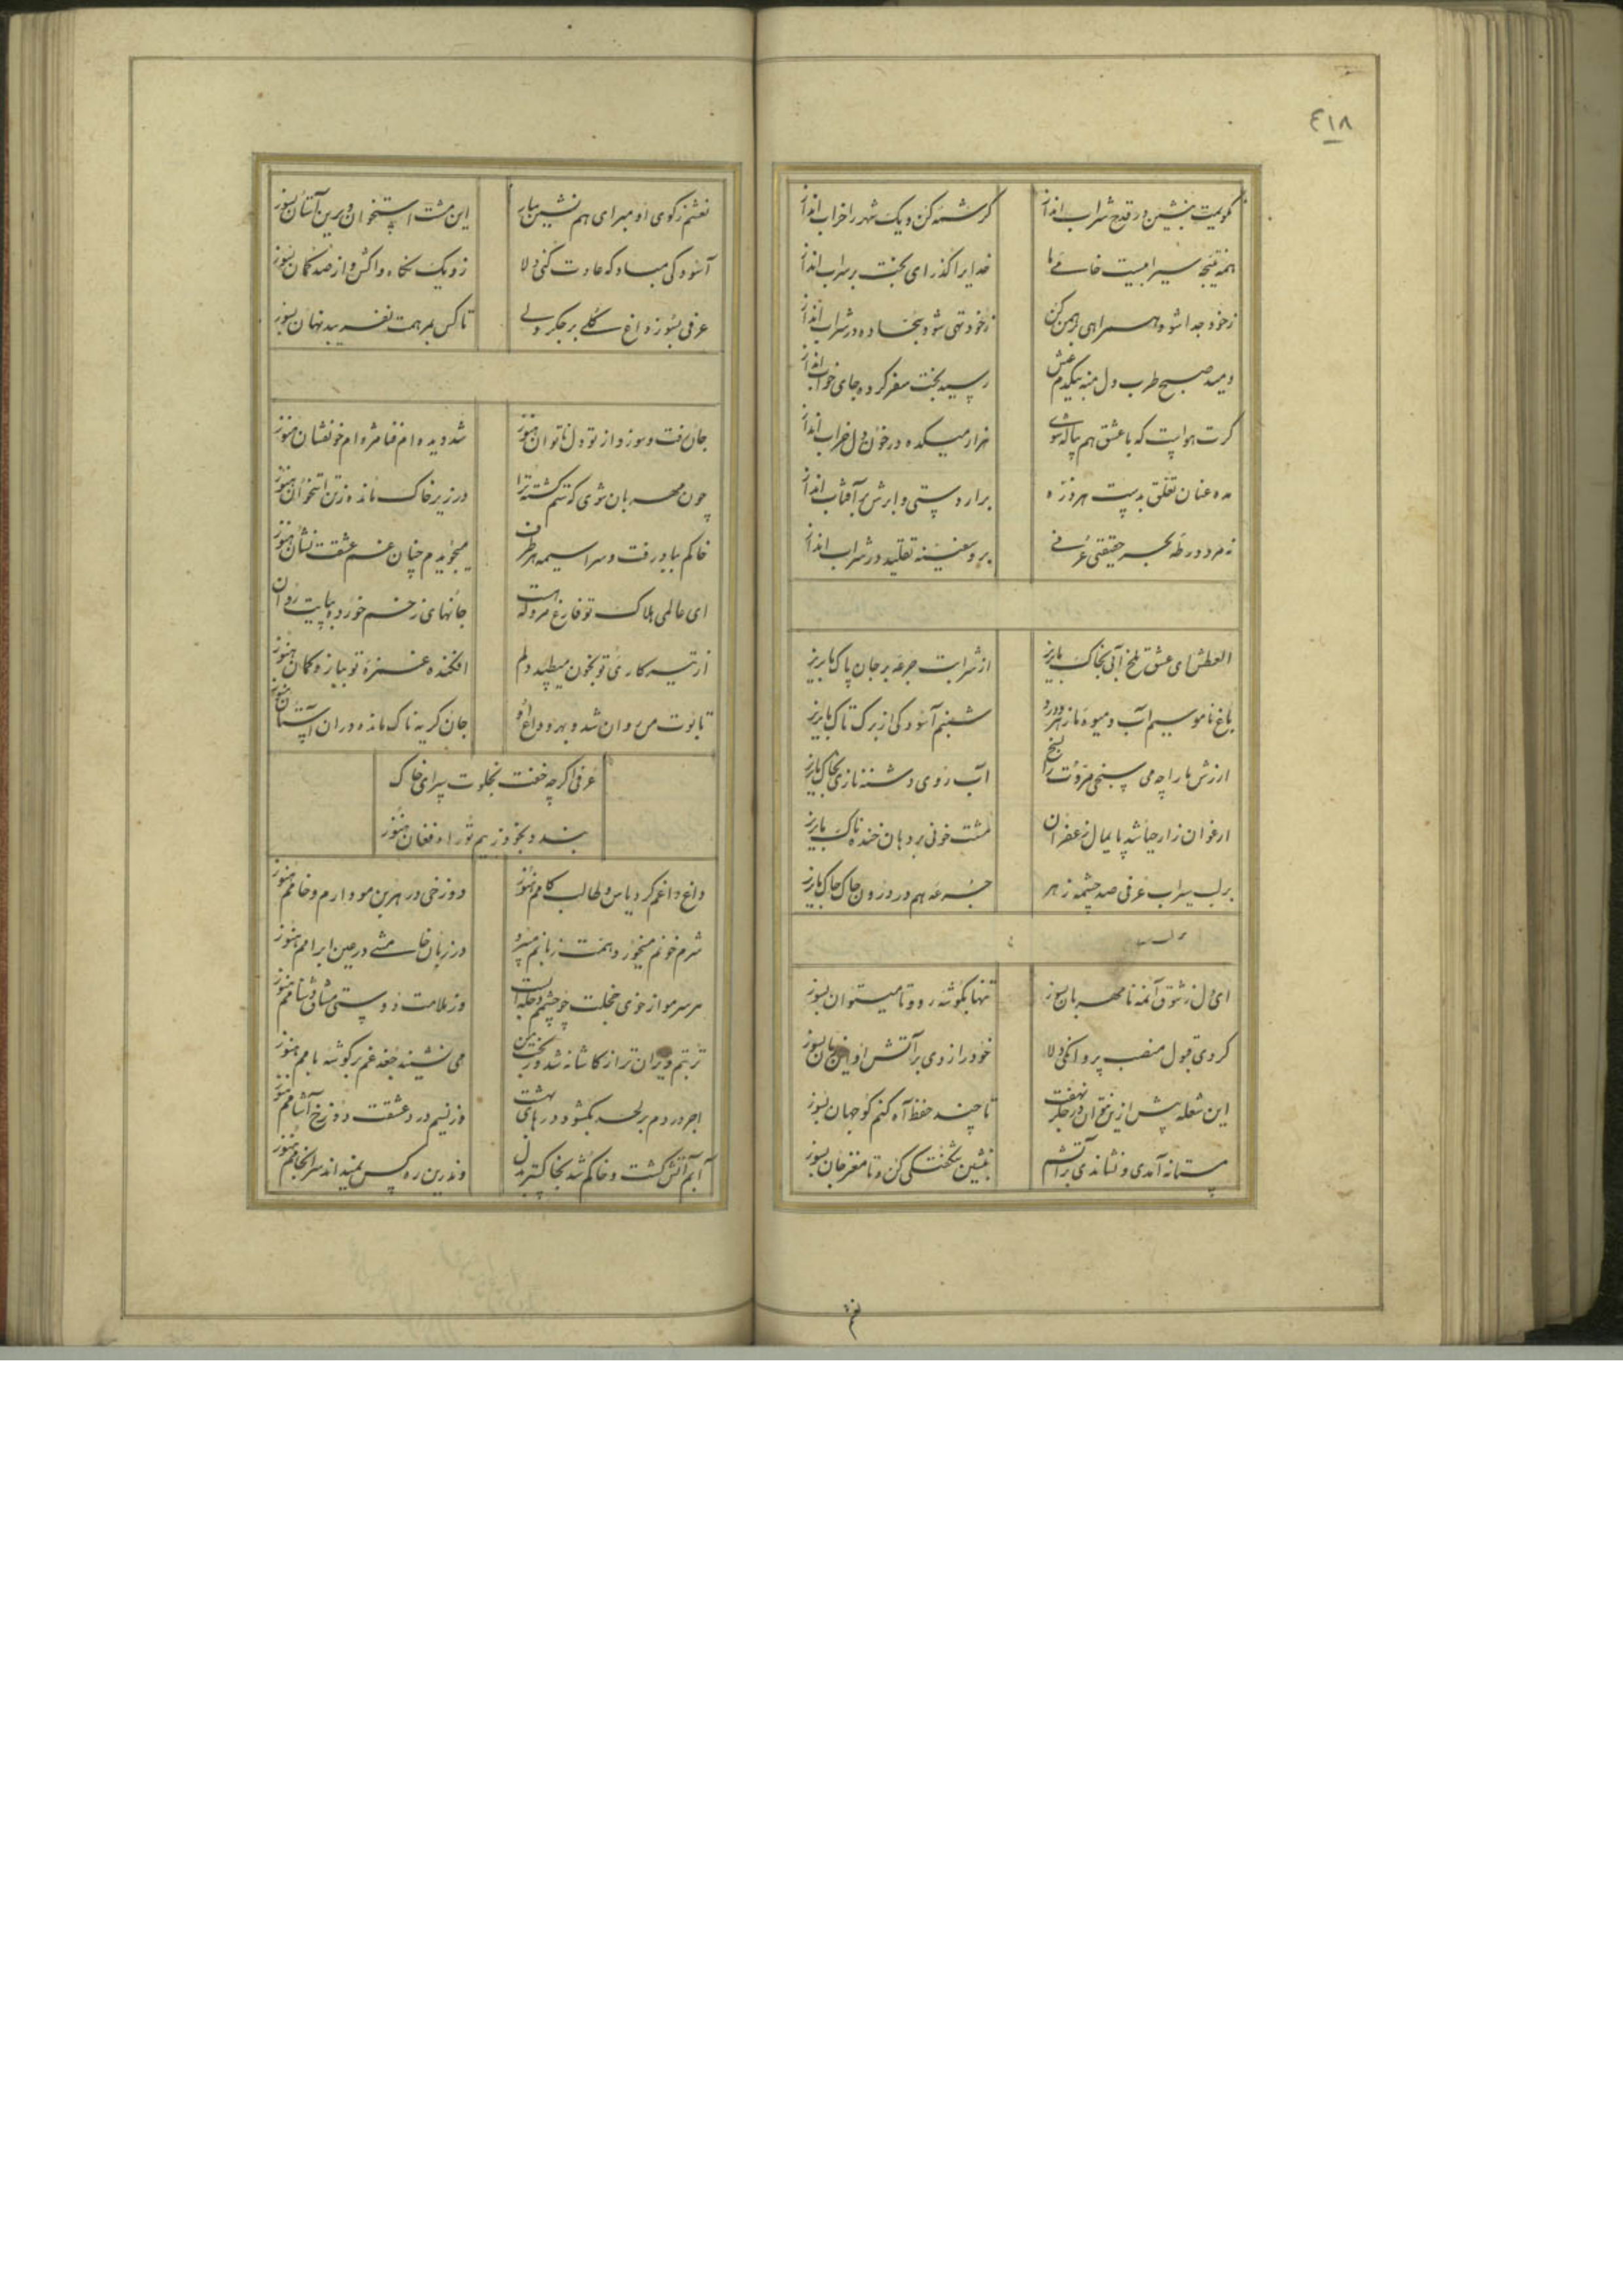 ٤١٨
نکویمت بنشین در قدح شراب انداز
کرشمه کن و یک شهر را خراب انداز
همه نتیجه سیرابیست خامی ما
خدایرا گذر ای بخت بر سراب انداز
زخود جدا شو و همراهی برهمن کن
زخود تهی شو و سجاده در شراب انداز
دمید صبح طرب دل منه بیکدم عیش
رسید بخت سفر کرده جای خواب انداز
کرت هواست که با عشق هم پیاله شوی
هزار میکده در خون دل خراب انداز
مده عنان تعلق بدست هر ذره
برار دستی و ابرش بر آفتاب انداز
نه مرد ورطه بحر حقیقتی عرفی
برو سفینه تقلید در شراب انداز
العطش ای عشق تلخ آبی بخاک ما بریز
از شرابت جرعه بر جان پاک ما بریز
باغ ناموسیم آب و میوه ما زهر و درد
شبنم آسودکی از برک تاک ما بریز
ارزش ما را چه می سنجی مروت را بسنج
آب روی دشنه نازی بخاک ما بریز
ارغوان زار حیا شد پایمال زعفران
مشت خونی بر دهان خنده ناک ما بریز
بر لب سیراب عرفی صد چشمه زهر
جرعه هم در درون چاک چاک ما بریز
ای دل ز شوق آن مه نامهربان بسوز
تنها بکوشه رو و تا میتوان بسوز
کردی قبول منصب پروانکی دلا
خود را زدی بر آتش او این زمان بسوز
این شعله پیش ازین نتوان در جگر نهفت
تا چند حفظ آه کنم کو جهان بسوز
مستانه آمدی و نشاندی بر آتشم
بنشین شکفتکی کن و تا مغز جان بسوز
نعشم
نعشم زکوی او مبر ای هم نشین بیار
این مشت استخوان و برین آستان بسوز
آسودکی مباد که عادت کنی دلا
زو یک نگاه واکش و از صد گمان بسوز
عرفی بسوز داغ گلی بر جگر ولی
تا کس بمرهمت نفریبد نهان بسوز
جان رفت و سوزد از تو دل ناتوان هنوز
شد دیده ام فنا مژه ام خونفشان هنوز
چون مهربان شوی که ستم گشته ترا
در زیر خاک مانده ز تن استخوان هنوز
خاکم بباد رفت و سراسیمه هر طرف
میجویدم چنان غم عشقت نشان هنوز
ای عالمی هلاک تو فارغ مرو که هست
جانهای زخم خورده بپایت روان
از تیر کاری تو بخون میطپد دلم
افکنده غمزه تو ببازو کمان هنوز
تابوت من روان شد و بهر وداع او
جان گریه ناک مانده در ان آستان هنوز
عرفی اگر چه خفت بخلوت سرای خاک
بندد بخود زبیم تو راه فغان هنوز
داغ داغم کرد یاس و طالب کامم هنوز
دوزخی در هر بن مو دارم و خامم هنوز
شرم خونم میخورد و همت زبانم میبرد
در زبان خامشی در عین ابرامم هنوز
هر سر مو از خوی خجلت چو چشمم دجله است
وز ملامت دوستی مشتاق دشنامم هنوز
تربتم ویران تر از کاشانه شد در بخت من
می نشیند جغد غم بر کوشه بامم هنوز
اجر دردم بر لحد بکشود درهای بهشت
وز نسیم درد عشقت دوزخ آشامم هنوز
آبم آتش گشت و خاکم شد بخاکستر بدل
وندرین ره کس نمیداند سرانجامم هنوز